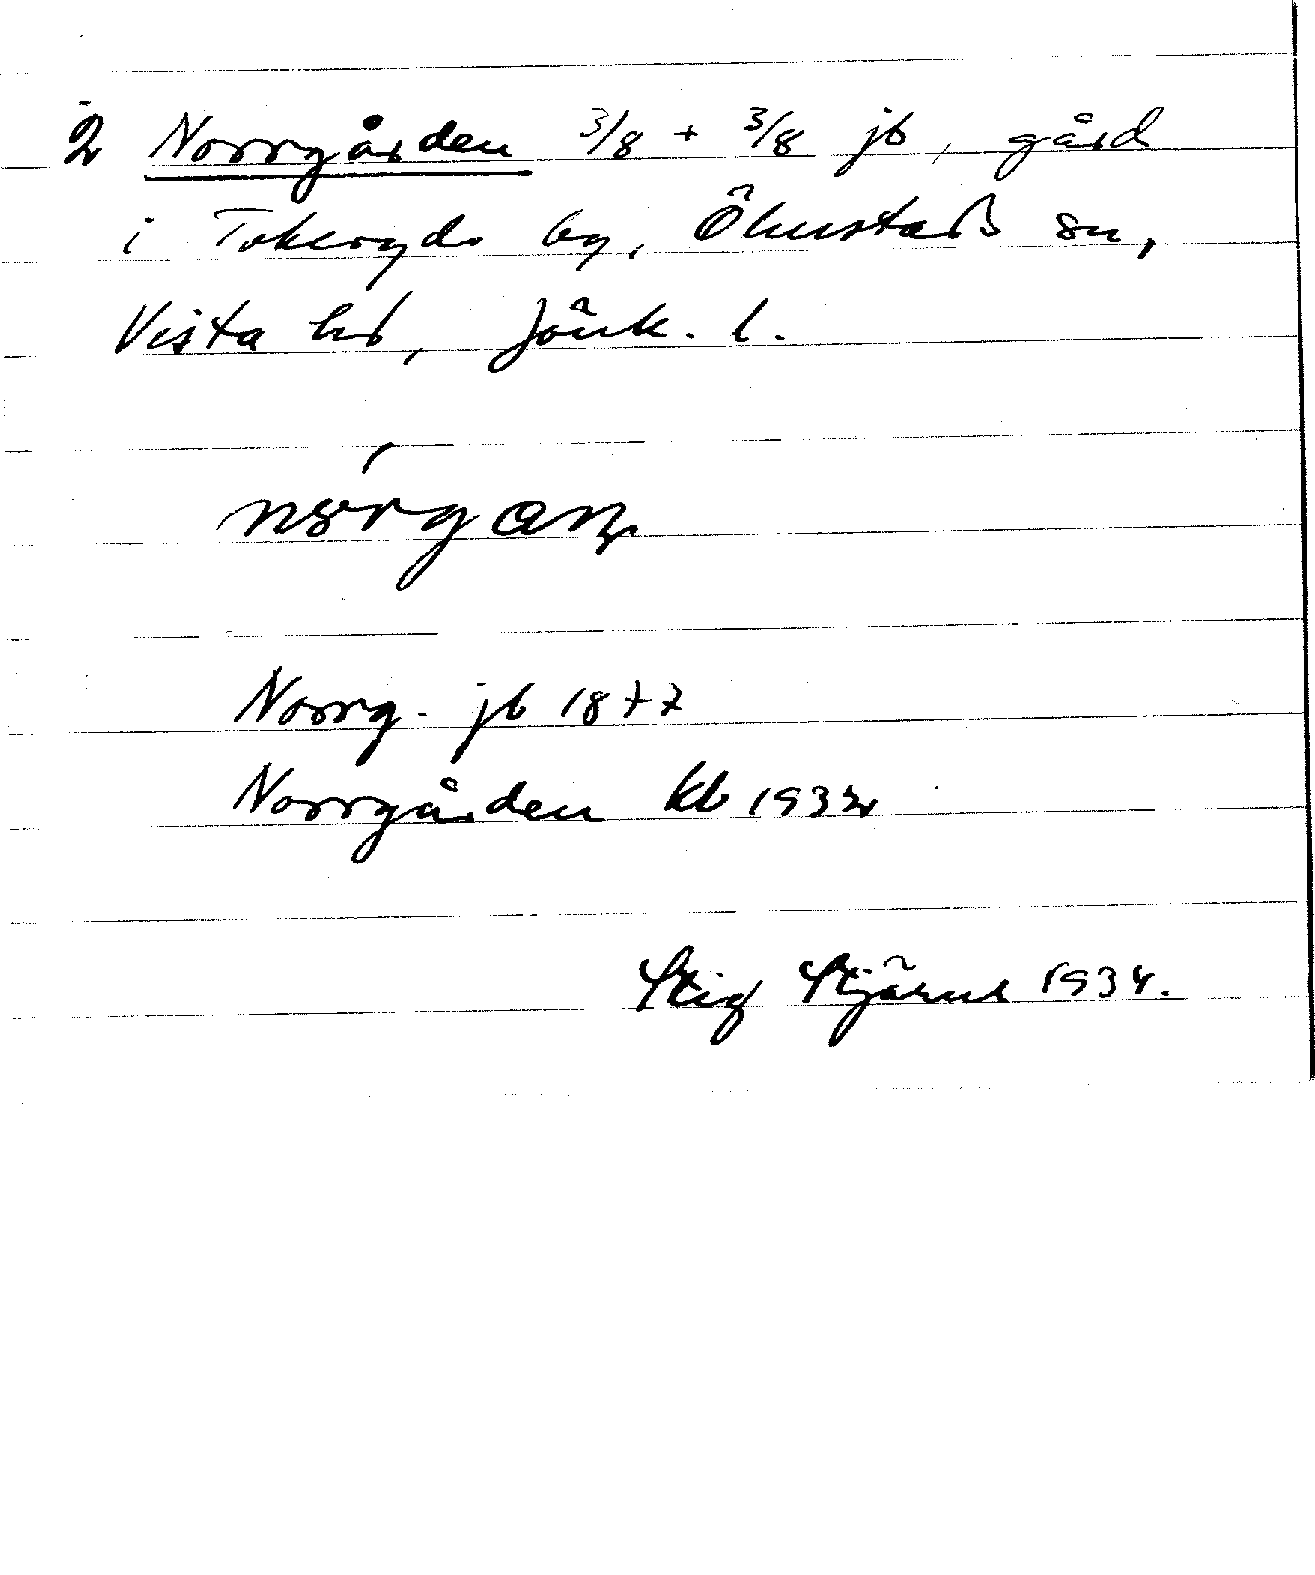 2 Norrgården 3/8 + 3/8 jb, gård
i Tokeryds by, Ölmstads sn,
Vista hd, Jönk. l.
Norrg. jb 1877
Norrgården kb 1932
Stig 1934.